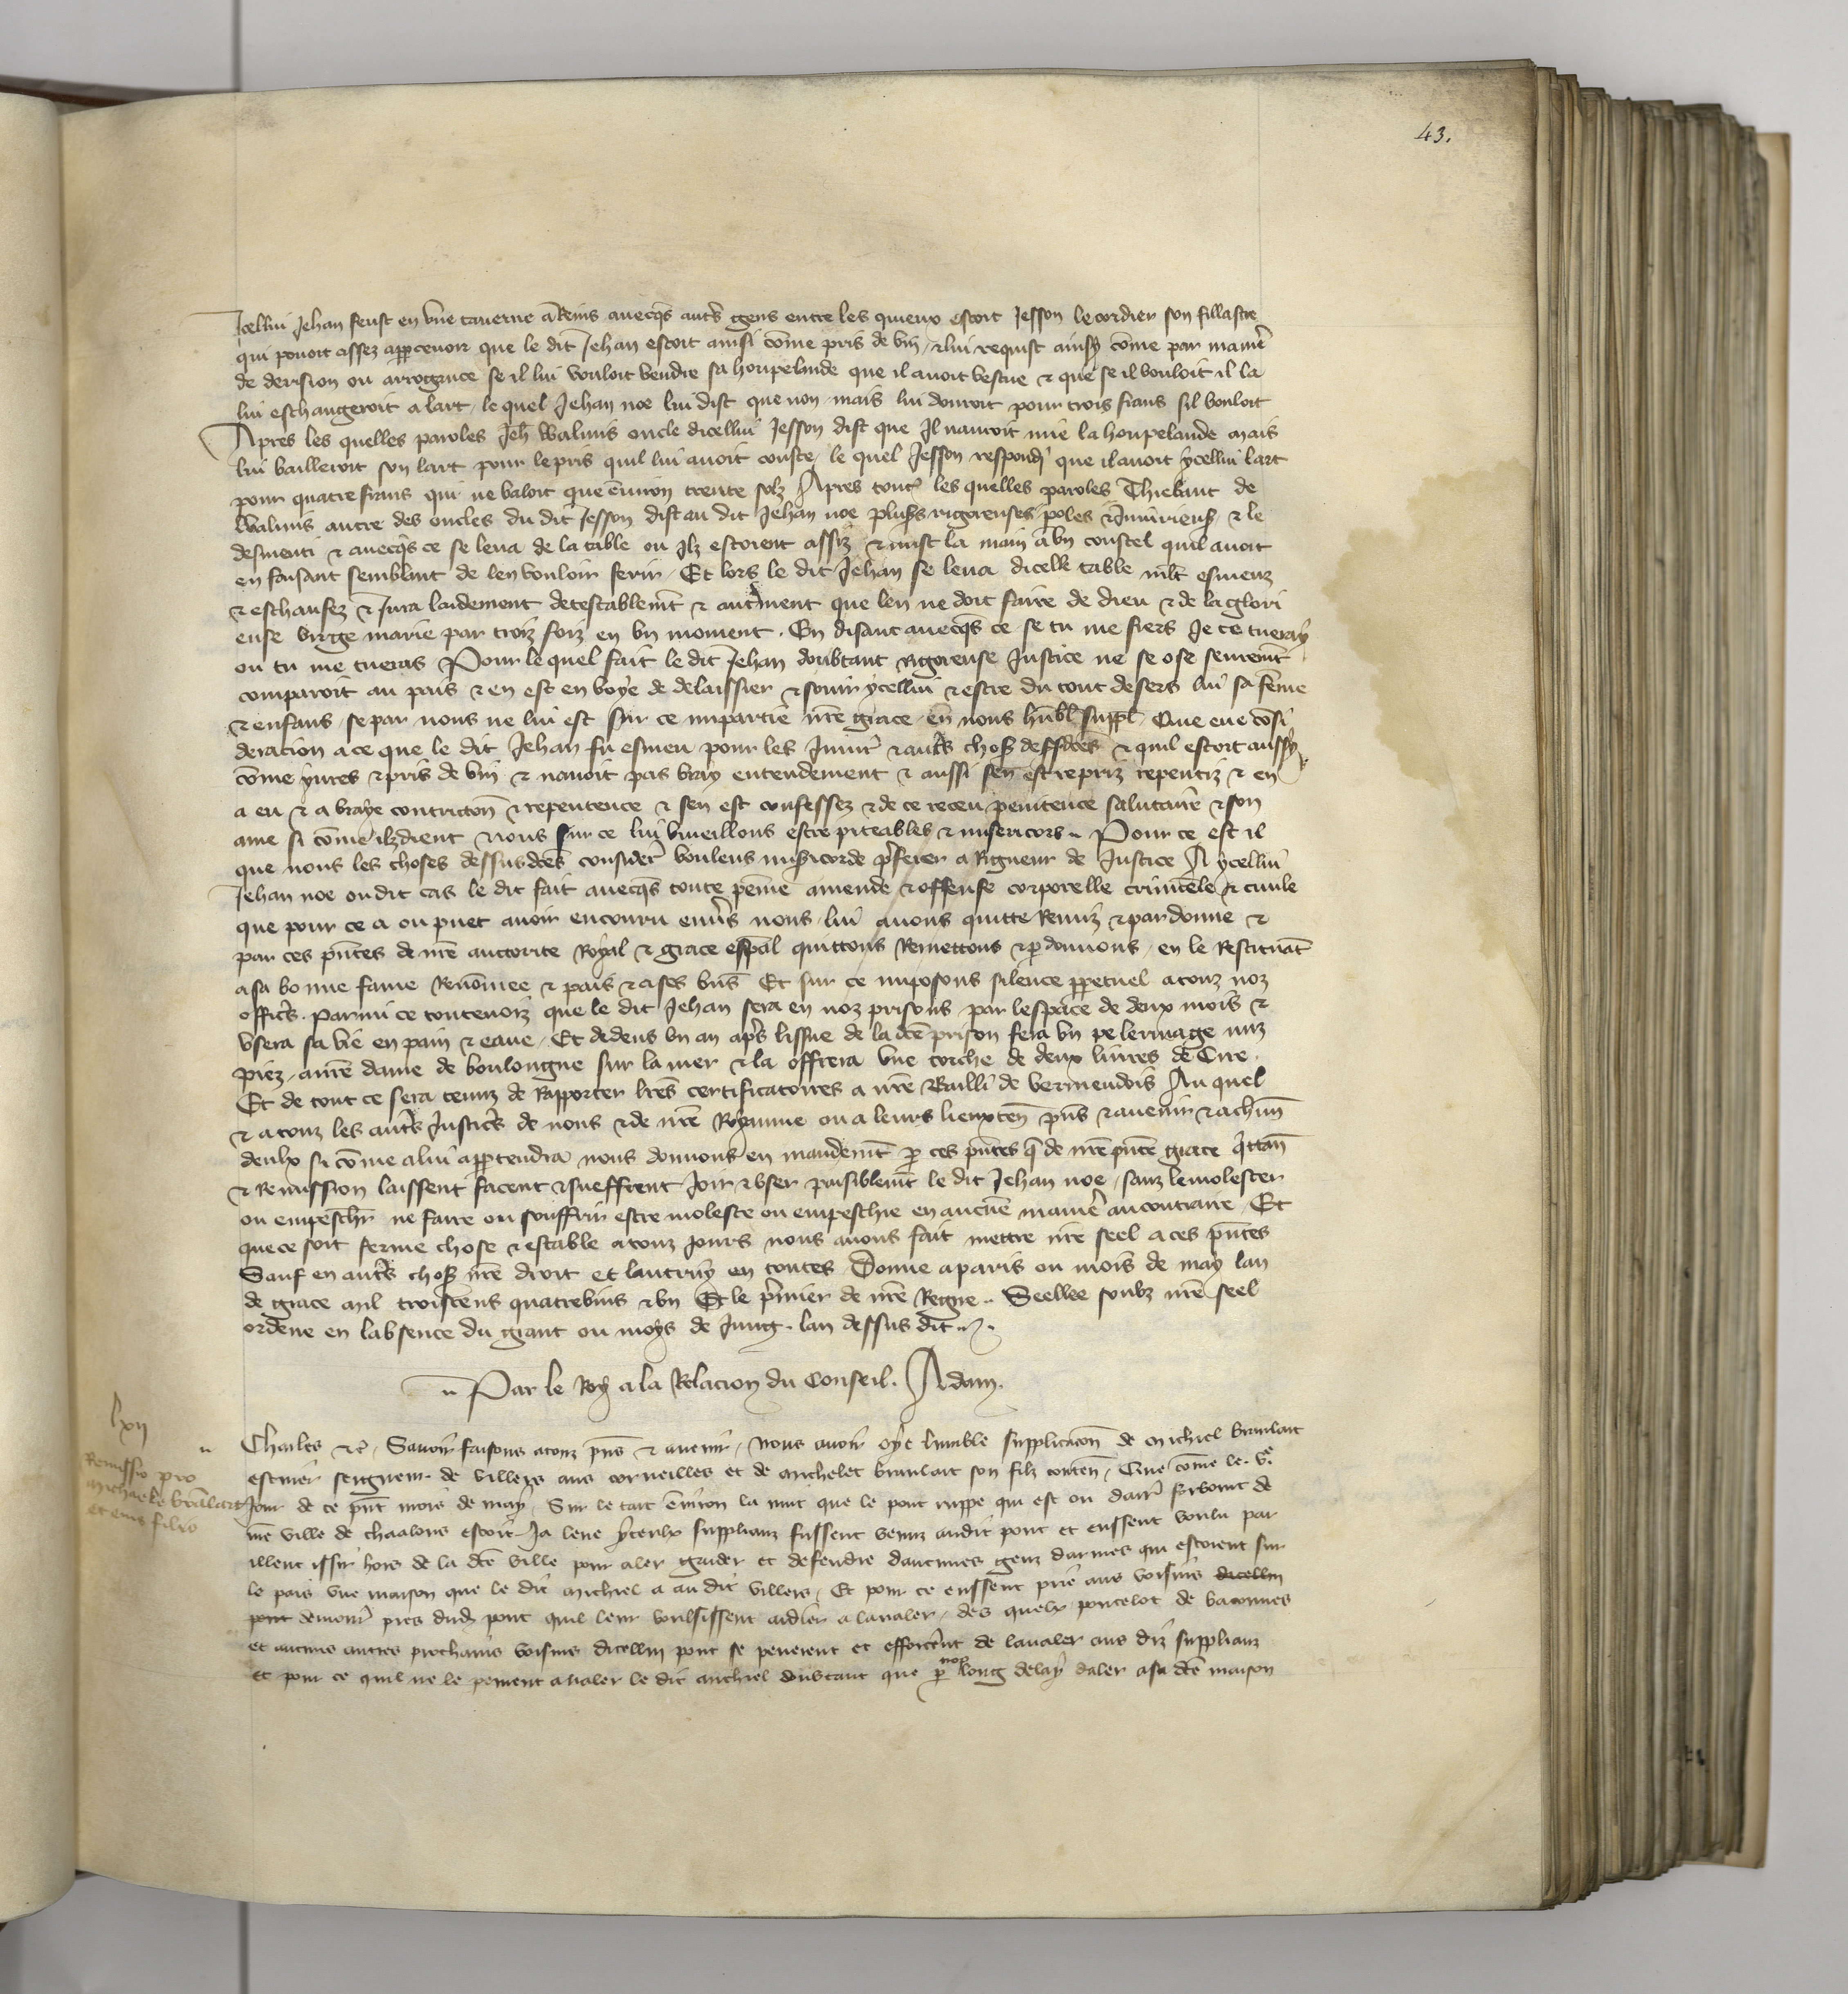 43.
Icellui Jehan feust en vne tauerne a Reins auecqs autrs gens entre les quieux estoit Jesson le cordier son fillastre
qui pouoit assez apparceuoir que le dit Jehan estoit ainsi cōme pris de vin / et lui requist ainsy cōme par manier
de derision ou arrogance se il lui vouloit vendre sa houpelande que il auoit vestue et que se il vouloit il la
lui eschangeroit a lart / le quel Jehan noe lui dist que non / mais lui donroit pour trois frans sil vouloit
Apres les quelles paroles Jeh walinis oncle dicellui Jesson dist que Il nauroit mie la houpelande mais
lui bailleroit son lart pour le pris quil lui auoit couste / le quel Jesson respondi que il auoit ycellui lart
pour quatre frans qui ne valoit que enuiron trente solz Apres toutes les quelles paroles Thiebaut de
walinis autre des oncles du dit Jesson dist au dit Jehan noe plusrs rigoreuses poles et Iniurieuses / et le
desmenti et auecqs ce se leua de la table ou Ilz estoient assiz et mist la main a vn coustel quil auoit
en faisant semblant de len vouloir ferir / Et lors le dit Jehan se leua dicelle table mlt esmeuz
et eschaufez et Jura laidement detestablemt et autrement que len ne doit faire de dieu et de la glori
euse virge marie par troiz foiz en vn moment . En disant auecqs ce se tu me fiers Je te tueray
ou tu me tueras Pour le quel fait le dit Jehan doubtant rigoreuse Justice ne se ose seuremt
comparoit au pais et en est en voye de delaissier et fouir ycellui et estre du tout desers lui sa fēme
et enfans se par nous ne lui est sur ce impartie nre grace / en nous humbl suppl Que eue cōsi
deracion a ce que le dit Jehan fu esmeu pour les Iniur et autrs choses dessdces et quil estoit aussy
cōme yures et pris de vin et nauoit pas vray entendement et aussi sen est repriz repentiz et en
a eu et a vraye contricton et repentence et sen est confessez et de ce receu penitence salutaire et son
ame si cōme ilz dient nous sur ce lui vueillons estre piteables et misericors . Pour ce est il
que nous les choses dessusdces consider voulens misicorde prferer a Rigueur de Justice A ycellui
Jehan noe ou dit cas le dit fait auecqs toute peine amende et offense corporelle criminele et ciuile
que pour ce a ou puet auoir encouru enuers nous lui auons quitte Remiz et pardonne et
par ces pntes de nre auctorite Royal et grace espāl quittons Remettons et pardonnons / en le Restituāt
a sa bonne fame Renōmee et pais et a ses bns Et sur ce imposons silence perpetuel a touz noz
officrs . Parmi ce toutenoiz que le dit Jehan sera en noz prisons par lespace de deux mois et
vsera sa vie en pain et eaue / Et dedens vn an aprs lissue de la dce prison fera vn pelerinage nuz
piez a nre dame de bouloingne sur la mer et la offrera vne torche de deux liures de Cire .
Et de tout ce sera tenuz de Rapporter lres certificatoires a nre Bailli de vermendois Au quel
et a touz les autrs Justicrs de nous et de nre Royaume ou a leurs lieuxten pns et auenir et a chun
deulx si cōme a lui appartendra nous donnons en mandemt par ces pntes que de nre pnte grace quittan
et Remission laissent facent et sueffrent Joir et vser paisiblemt le dit Jehan noe / sanz le molester
ou empeschr ne faire ou souffrir estre moleste ou empeschie en aucune manier au contraire / Et
que ce soit ferme chose et estable a touz jours nous auons fait mettre nre seel a ces pntes
Sauf en autrs choses nre droit et lautruy en toutes Donne a paris ou mois de may lan
de grace mil troiscens quatrevins et vn Et le prmier de nre Regne .. Seellee soubz nre seel
ordene en labsence du grant ou moys de Juing . lan dessus dit ..
Par le Roy a la Relacion du Conseil . Adam .
lxii
Remissio pro
michaele braulart
et eius filio
Charles etc / Sauoir faisons a touz pns et auenir / Nous auoir oye lumble supplicacion de michiel braulart
escuier seigneur de villers aus corneilles et de michelet braulart son filz conten / Que cōme le ve
Jour de ce pnt mois de may / Sur le tart enuiron la nuit que le pont ruppe qui est ou darr forbourc de
nre ville de chaalons estoit Ja leue yceulx supplianz fussent venuz audit pont et eussent voulu par
illeuc issir hors de la dce ville pour aler garder et defendre daucunes genz darmes qui estoient sur
le pais vne maison que le dit michiel a au dit villers / Et pour ce eussent prie aus voisins dicellui
pont demour pres dud pont quil leur voulsissent aidier a laualer / des quelx poncelot de baconnes
et aucuns autres prochains voisins dicellui pont se penerent et efforcerent de laualer aus diz supplianz
et pour ce quil ne le peurent aualer le dit michiel doubtant que par trop long delay daler a sa dce maison